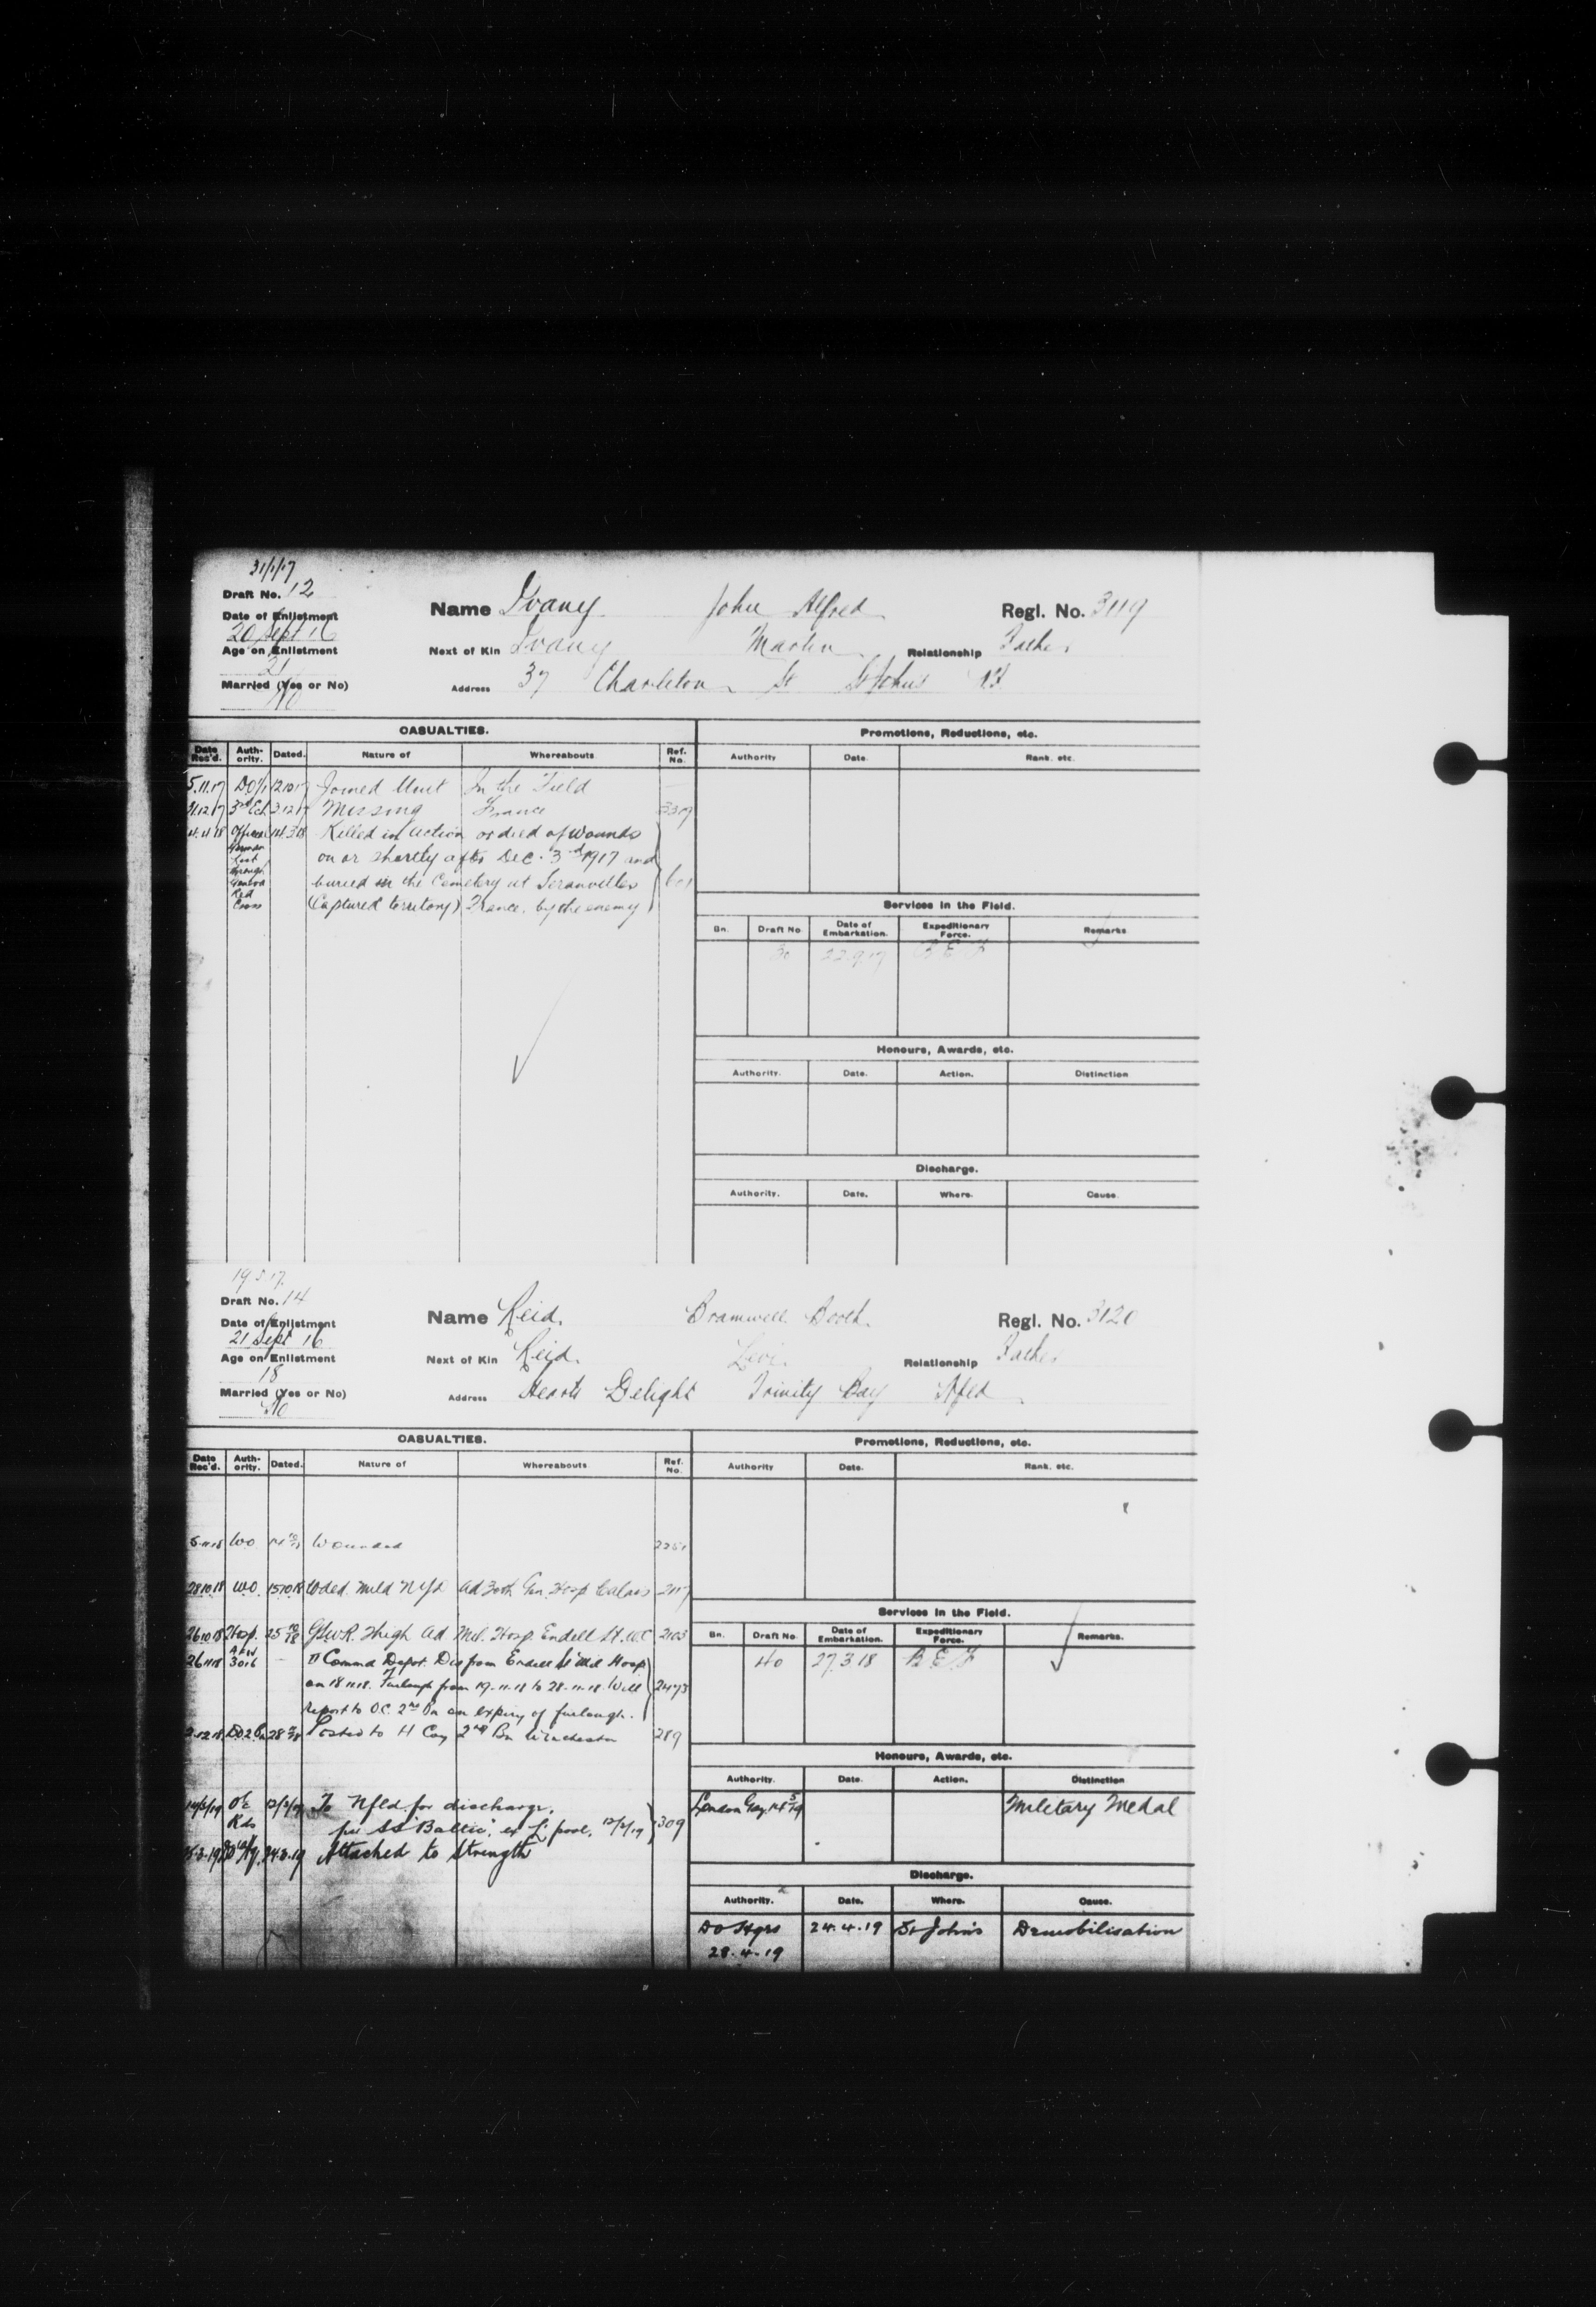 31/1/17
Draft No. 12
Date of Enlistment
20 Sept 16
Age on Enlistment
21
Married (Yes or No)
No
Name Ivany John Alfred Regl. No. 3119
Next of Kin Ivany Martin Relationship Father
Address 37 Charleton St St Johns
CASUALTIES.
Date Rec'd. Auth-ority. Dated. Nature of Whereabouts Ref. No.
5.11.17 DO/1 12.10.17 Joined Unit In the Field
31.12.17 3rd Ech 3.12.17 Missing France 3309
4.4.18 Officer 14.3.18 Killed in action or died of wounds
German
on or shortly after Dec. 3rd 1917 and
through
buried in the Cemetery at Seranvilles 601
Red
Cross
(Captured territory) France. by the enemy
Promotions, Reductions, etc.
Authority Date. Rank. etc.
Services in the Field.
Bn. Draft No Date of Embarkation. Expeditionary Force. Remarks
30 22.9.17 B E F
Honours, Awards, etc.
Authority. Date. Action. Distinction
Discharge.
Authority. Date. Where. Cause.
19 5 17.
Draft No. 14
Date of Enlistment
21 Sept 16
Age on Enlistment
18
Married (Yes or No)
No
Name Reid. Bramwell Booth. Regl. No. 3120
Next of Kin Reid. Levi. Relationship Father
Address Hearts Delight Trinity Bay Nfld
CASUALTIES.
Date Rec'd. Auth-ority. Dated. Nature of Whereabouts Ref. No.
5.11.18 WO Wounded
28.10.18 WO 15.10.18 Wded. Mild Nyd ad 30th Gen. Hosp Calais 2117
26.10.18 Hosp. 25 10/18 GSW R. Thigh ad Mil. Hosp. Endell St. WC 2103
26.11.18 3016 II Comma Depot. Dis from Endell St Mil Hosp
on 18.11.18. Furlough from 19-11-18 to 28-11-18. Will 2473
report to O.C. 2nd Bn on expiry of furlough.
2.12.18 DO 2 Bn Posted to H Coy 2nd Bn Winchester 289
To Nfld. for discharge,
Rds per SS "Baltic", ex L'pool, 12/2/19 309
24.3.19 Attached to Strength
Promotions, Reductions, etc.
Authority Date. Rank. etc.
Services in the Field.
Bn. Draft No Date of Embarkation. Expeditionary Force. Remarks.
40 27.3.18 B E F
Honours, Awards, etc.
Authority. Date. Action. Distinction
London Gaz. 14 5/19 Military Medal
Discharge.
Authority. Date. Where. Cause.
DO Hqrs 24.4.19 St John's Demobilisation
28.4.19